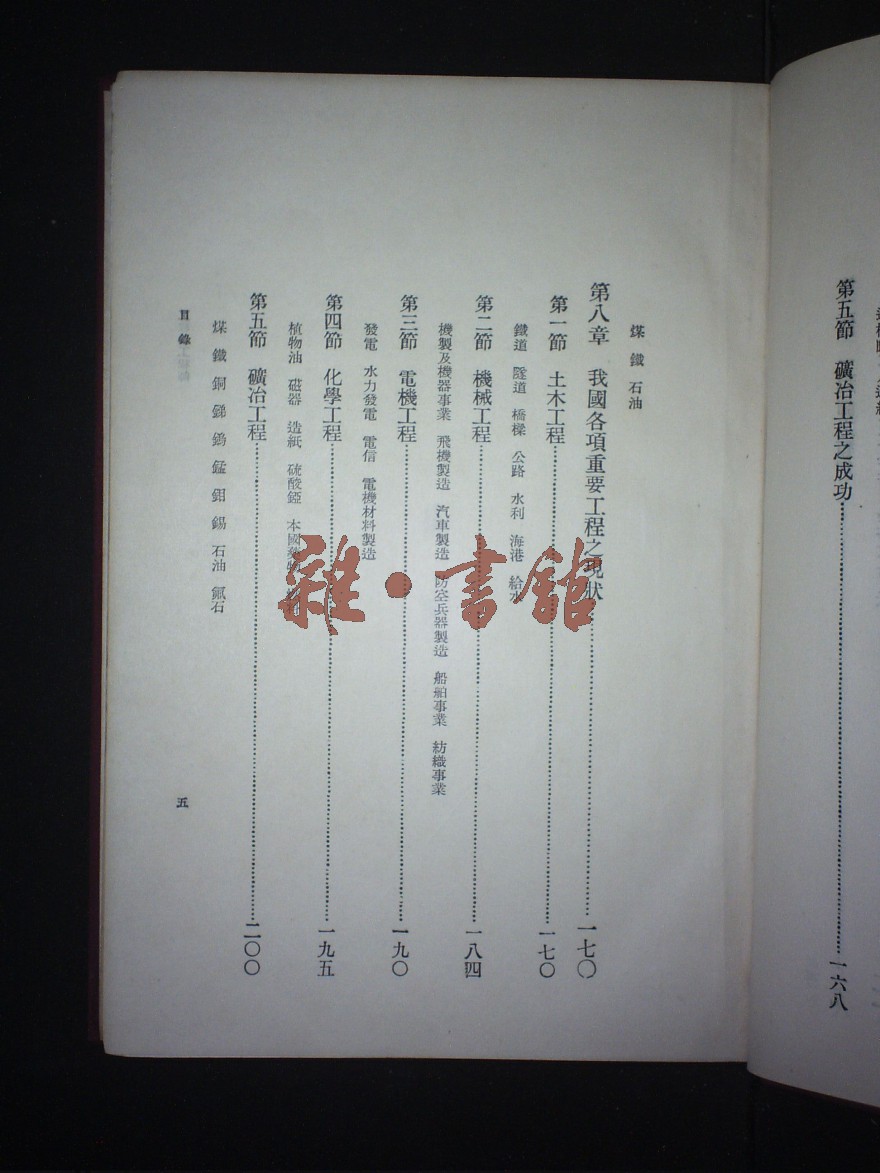 第五節　礦冶工程之成功……一六八
煤　鐵　石油
第八章　我國各項重要工程之現狀……一七〇
第一節　土木工程……一七〇
鐵道　隧道　橋樑　公路　水利　海港　給水
第二節　機械工程……一八四
機製及機器事業　飛機製造　汽車製造　防空兵器製造　船舶事業　紡織事業
第三節　電機工程……一九〇
發電　水力發電　電信　電機材料製造
第四節　化學工程……一九五
植物油　磁器　造紙　硫酸錏　本國藥物
第五節　礦冶工程……二〇〇
煤　鐵　銅　銻　鎢　錳　鉬　錫　石油　氟石
目錄
五
雜·書館